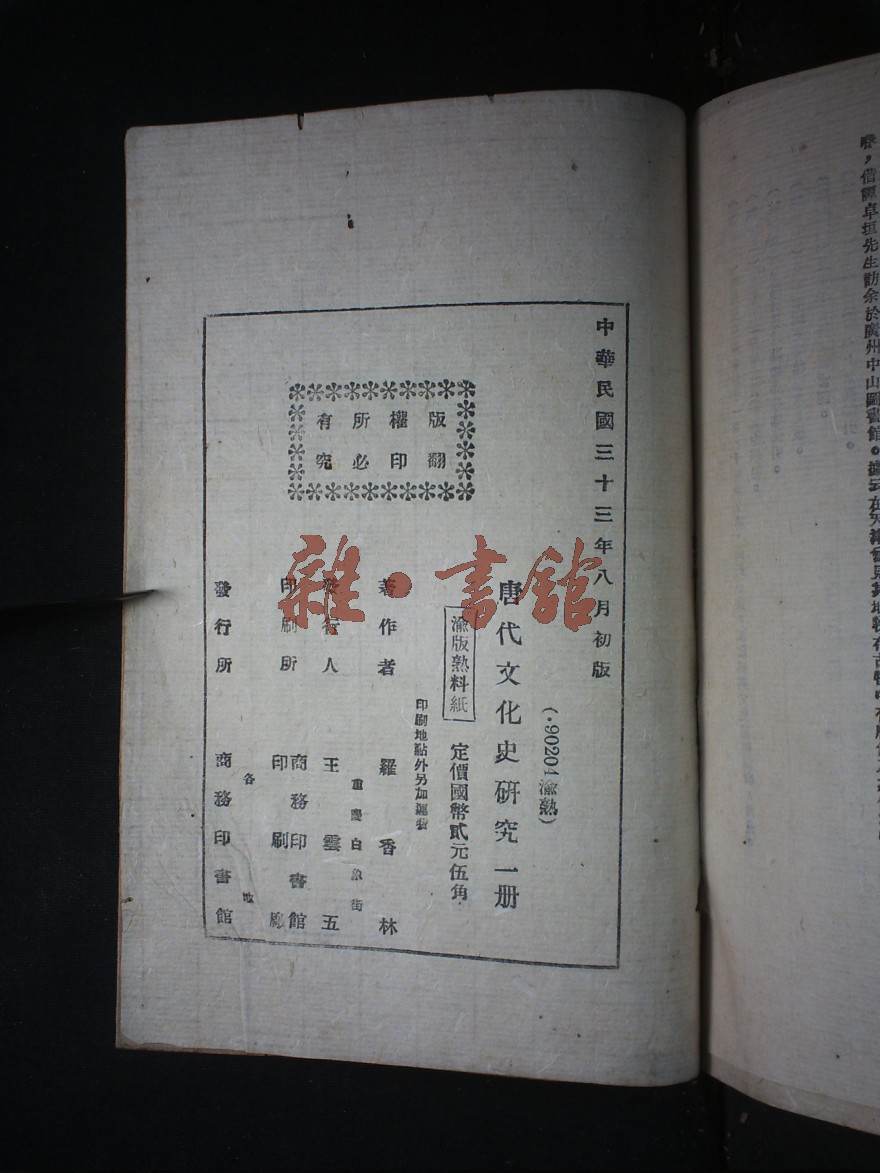 中華民國三十三年八月初版
(·90204渝熟)
唐代文化史研究一册
渝版熟料紙
定價國幣貳元伍角
印刷地點外另加運費
版權所有
翻印必究
著作者 羅香林
重慶白象街
發行人 王雲五
印刷所 商務印書館
印刷廠
各地
發行所 商務印書館
雜·書館
春，借譚卓垣先生訪余於廣州中山圖書館。據云在天津曾見其地